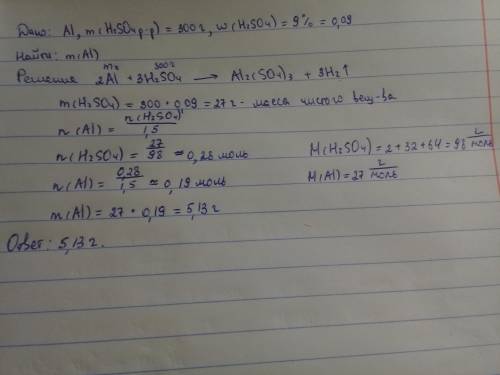 Дано: Al, m(H₂SO₄ р-р) = 300 г, w(H₂SO₄) = 9% = 0,09
Найти: m(Al)
m г 300 г
Решение 2Al + 3H₂SO₄ → Al₂(SO₄)₃ + 3H₂↑
m(H₂SO₄) = 300 · 0,09 = 27 г - масса чистого вещ-ва
n(Al) = n(H₂SO₄) / 1,5
n(H₂SO₄) = 27/98 ≈ 0,28 моль M(H₂SO₄) = 2 + 32 + 64 = 98 г/моль
n(Al) = 0,28/1,5 ≈ 0,19 моль M(Al) = 27 г/моль
m(Al) = 27 · 0,19 = 5,13 г
Ответ: 5,13 г.